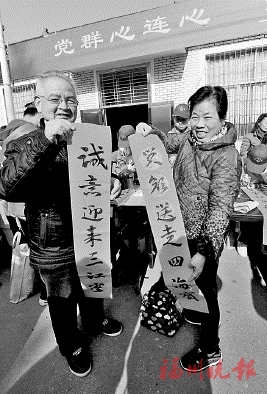 党群心连心
诚意迎来三江客
笑颜送走四海
福州晚报